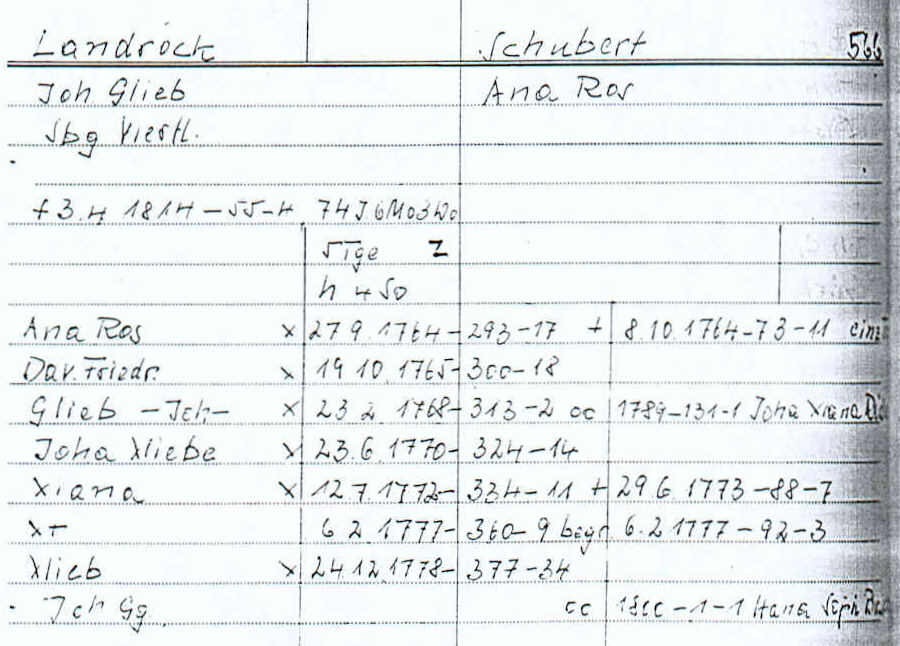 Landrock Schubert 566
Joh Glieb Ana Ros
Sbg Viertl.
† 3.4 1814-55-4 74J.6Mo3Wo
Tge Z
h 4 So
Ana Ros x 27 9.1764-293-17 + 8.10.1764-73-11
Dav. Friedr. x 19 10.1765-300-18
Glieb -Joh- x 23 2 1768-313-2 oc 1789-131-1 Joha Xiana
Joha Xliebe x 23.6.1770-324-14
Xiana x 12.7.1772-334-11 + 29 6.1773-88-7
Xt 6 2.1777-360-9 begr 6.2 1777-92-3
Xlieb x 24.12.1778-377-34
Joh Gg oc 1800-1-1 Hana Soph